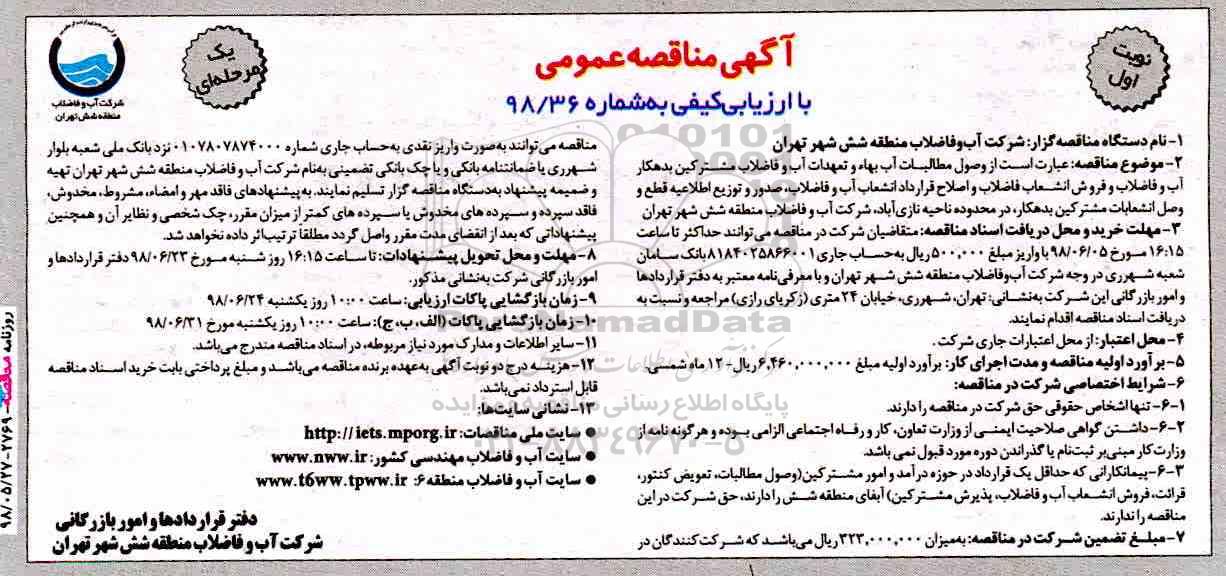 آگهی مناقصه عمومی
با ارزیابی کیفی به شماره ۹۸/۳۶
نوبت
اول
یک
مرحله‌ای
شرکت آب و فاضلاب
منطقه شش تهران
۱- نام دستگاه مناقصه گزار: شرکت آب وفاضلاب منطقه شش شهر تهران
۲- موضوع مناقصه: عبارت است از وصول مطالبات آب بهاء و تعهدات آب و فاضلاب مشترکین بدهکار
آب و فاضلاب و فروش انشعاب فاضلاب و اصلاح قرارداد انشعاب آب و فاضلاب، صدور و توزیع اطلاعیه قطع و
وصل انشعابات مشترکین بدهکار، در محدوده ناحیه نازی‌آباد، شرکت آب و فاضلاب منطقه شش شهر تهران
۳- مهلت خرید و محل دریافت اسناد مناقصه: متقاضیان شرکت در مناقصه می‌توانند حداکثر تا ساعت
۱۶:۱۵ مورخ ۹۸/۰۶/۰۵ با واریز مبلغ ۵۰۰,۰۰۰ ریال به‌حساب جاری ۸۱۸۴۰۲۵۸۶۶۰۰۱ بانک سامان
شعبه شهرری در وجه شرکت آب وفاضلاب منطقه شش شهر تهران و با معرفی‌نامه معتبر به دفتر قراردادها
و امور بازرگانی این شرکت به‌نشانی: تهران، شهرری، خیابان ۲۴ متری (زکریای رازی) مراجعه و نسبت به
دریافت اسناد مناقصه اقدام نمایند.
۴- محل اعتبار: از محل اعتبارات جاری شرکت.
۵- برآورد اولیه مناقصه و مدت اجرای کار: برآورد اولیه مبلغ ۶,۴۶۰,۰۰۰,۰۰۰ ریال- ۱۲ ماه شمسی.
۶- شرایط اختصاصی شرکت در مناقصه:
۶-۱- تنها اشخاص حقوقی حق شرکت در مناقصه را دارند.
۶-۲- داشتن گواهی صلاحیت ایمنی از وزارت تعاون، کار و رفاه اجتماعی الزامی بوده و هر گونه نامه از
وزارت کار مبنی بر ثبت‌نام یا گذراندن دوره مورد قبول نمی باشد.
۶-۳- پیمانکارانی که حداقل یک قرارداد در حوزه درآمد و امور مشترکین (وصول مطالبات، تعویض کنتور،
قرائت، فروش انشعاب آب و فاضلاب، پذیرش مشترکین) آبفای منطقه شش را دارند، حق شرکت در این
مناقصه را ندارند.
۷- مبلغ تضمین شرکت در مناقصه: به‌میزان ۳۲۳,۰۰۰,۰۰۰ ریال می‌باشد که شرکت کنندگان در
مناقصه می‌توانند به‌صورت واریز نقدی به‌حساب جاری شماره ۰۱۰۷۸۰۷۸۷۴۰۰۰ نزد بانک ملی شعبه بلوار
شهرری یا ضمانتنامه بانکی و یا چک بانکی تضمینی به‌نام شرکت آب و فاضلاب منطقه شش شهر تهران تهیه
و ضمیمه پیشنهاد به‌دستگاه مناقصه گزار تسلیم نمایند. به پیشنهادهای فاقد مهر و امضاء، مشروط، مخدوش،
فاقد سپرده و سپرده های مخدوش یا سپرده های کمتر از میزان مقرر، چک شخصی و نظایر آن و همچنین
پیشنهاداتی که بعد از انقضای مدت مقرر واصل گردد مطلقاً ترتیب‌اثر داده نخواهد شد.
۸- مهلت و محل تحویل پیشنهادات: تا ساعت ۱۶:۱۵ روز شنبه مورخ ۹۸/۰۶/۲۳ دفتر قراردادها و
امور بازرگانی شرکت به‌نشانی مذکور.
۹- زمان بازگشایی پاکات ارزیابی: ساعت ۱۰:۰۰ روز یکشنبه ۹۸/۰۶/۲۴
۱۰- زمان بازگشایی پاکات (الف، ب، ج): ساعت ۱۰:۰۰ روز یکشنبه مورخ ۹۸/۰۶/۳۱
۱۱- سایر اطلاعات و مدارک مورد نیاز مربوطه، در اسناد مناقصه مندرج می‌باشد.
۱۲- هزینه درج دو نوبت آگهی به‌عهده برنده مناقصه می‌باشد و مبلغ پرداختی بابت خرید اسناد مناقصه
قابل استرداد نمی‌باشد.
۱۳- نشانی سایت‌ها:
● سایت ملی مناقصات: http://iets.mporg.ir
● سایت آب و فاضلاب مهندسی کشور: www.nww.ir
● سایت آب و فاضلاب منطقه ۶: www.t6ww.tpww.ir
دفتر قراردادها و امور بازرگانی
شرکت آب و فاضلاب منطقه شش شهر تهران
روزنامه مناقصه - ۲۷۶۹ - ۹۸/۰۵/۲۷
ParsNamadData
پایگاه اطلاع رسانی مناقصه و مزایده
۰۲۱-۸۸۳۴۹۶۷۰-۵